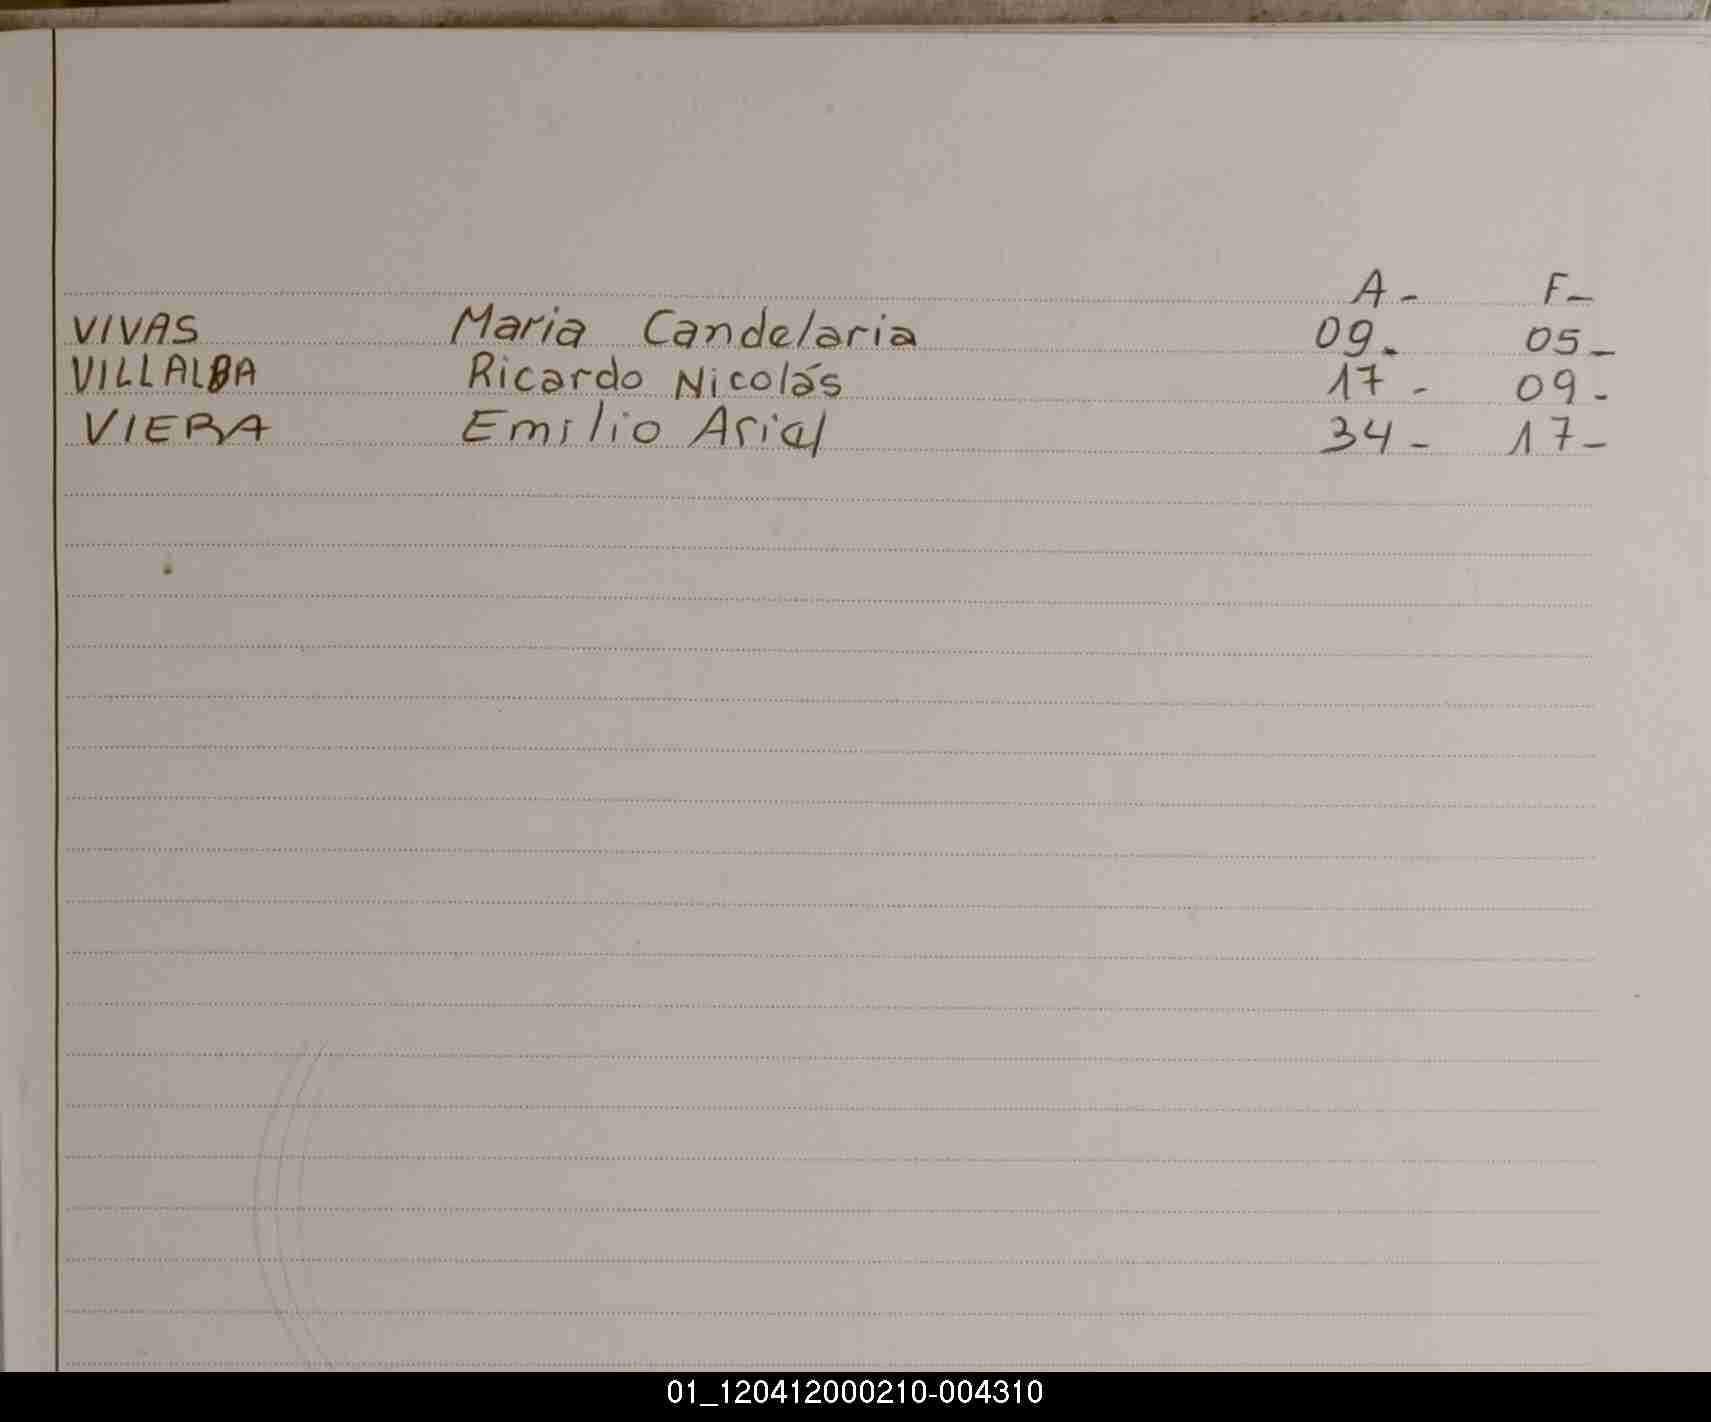 A - F -
VIVAS Maria Candelaria 09 - 05 -
VILLALBA Ricardo Nicolás 17 - 09 -
VIERA Emilio 34 - 17 -
01_120412000210-004310